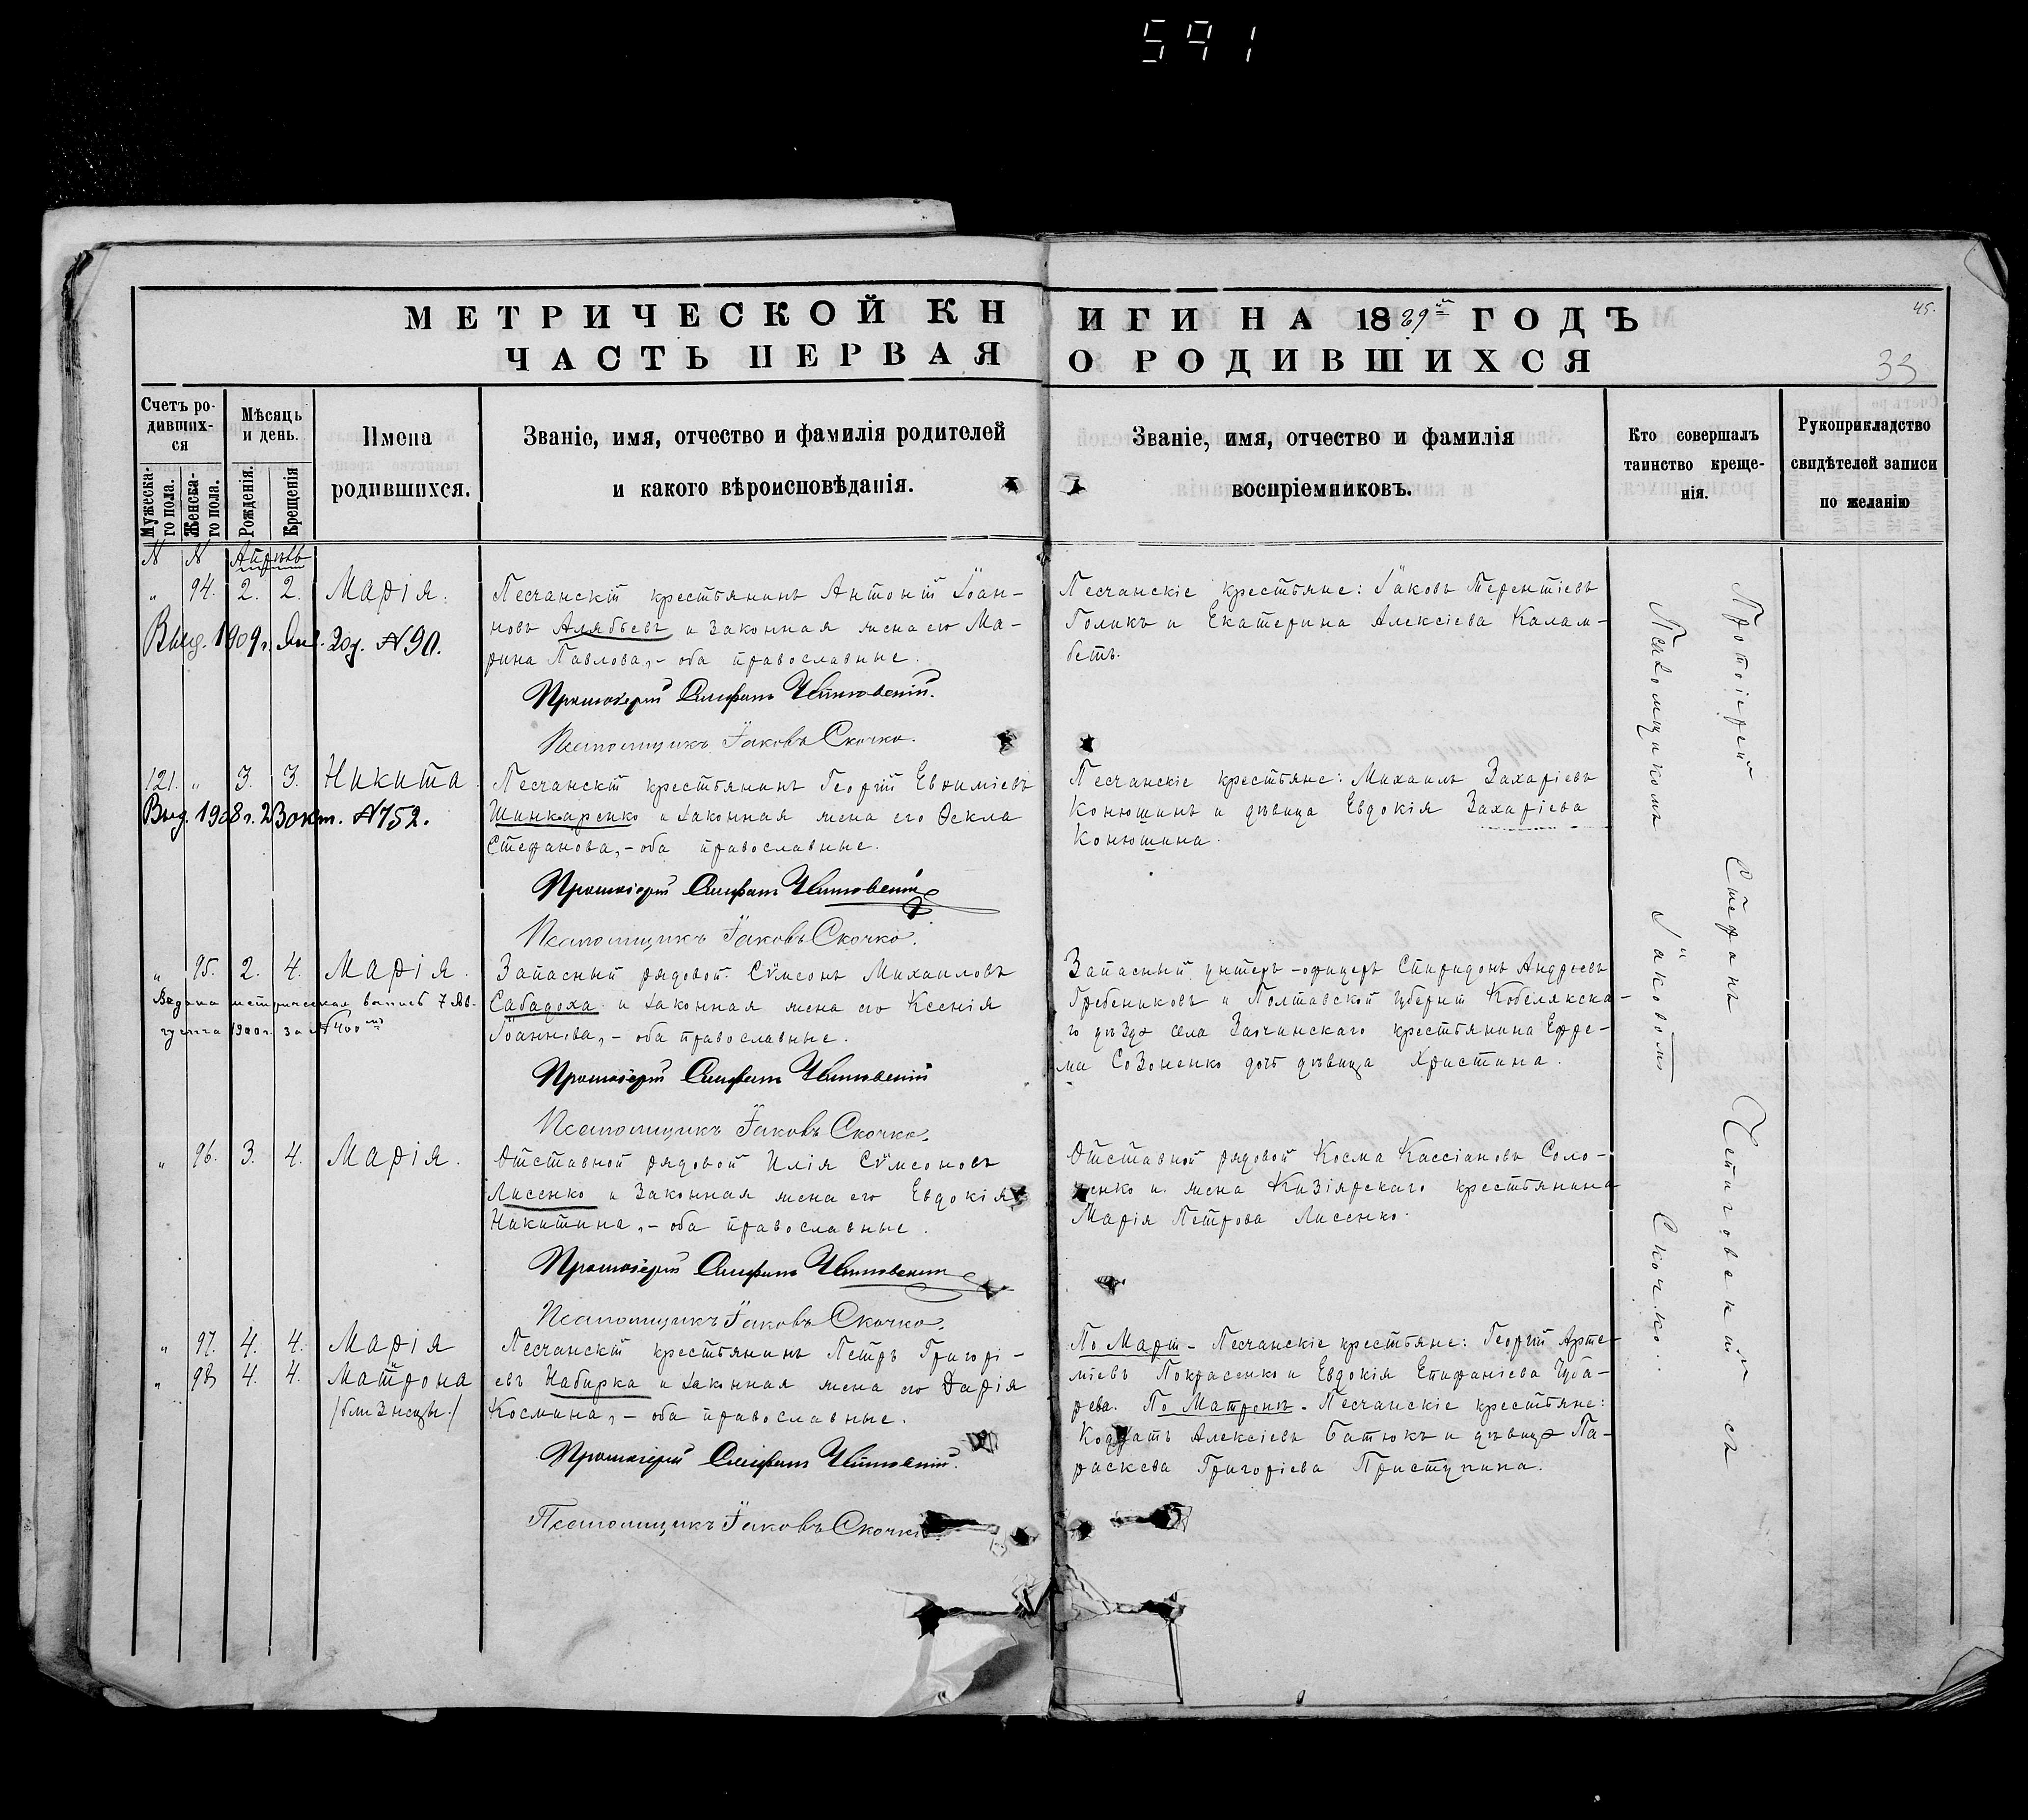 591
МЕТРИЧЕСКОЙ КНИГИ НА 1889 ГОДЪ
45.
ЧАСТЬ ПЕРВАЯ О РОДИВШИХСЯ
33
Счетъ родившихся
Мужеска-го пола.
Женска-го пола.
Мѣсяцъ и день.
Рожденія.
Крещенія
Имена родившихся.
Званіе, имя, отчество и фамилія родителей
и какого вѣроисповѣданія.
Званіе, имя, отчество и фамилія
воспріемниковъ.
Кто совершалъ
таинство креще-
нія.
Рукоприкладство
свидѣтелей записи
по желанію
N N Апрѣль
" 94. 2. 2. Марія.
Песчанскій крестьянинъ Антоній Іоан-
новъ Алябьевъ и законная жена его Ма-
рина Павлова, - оба православные.
Выд. 1909 г. Янв. 20 д. N 90.
Протоіерей Стефанъ
Псаломщикъ Іаковъ Скочко.
Песчанскіе крестьяне: Іаковъ Терентіевъ
Голикъ и Екатерина Алексіева Калам-
бетъ.
121. " 3. 3. Никита
Песчанскій крестьянинъ Георгій Евѳиміевъ
Шинкаренко и законная жена его Ѳекла
Стефанова, - оба православные.
Выд. 1908 г. 23 окт. N 752.
Протоіерей Стефанъ
Псаломщикъ Іаковъ Скочко.
Песчанскіе крестьяне: Михаилъ Захаріевъ
Конюшинъ и дѣвица Евдокія Захаріева
Конюшина.
" 95. 2. 4. Марія.
Запасный рядовой Сѵмеонъ Михаиловъ
Сабадоха и законная жена его Ксенія
Іоаннова, - оба православные.
Выдана метрическая выпись 7 Ав-
густа 1900 г. за N 400
Протоіерей Стефанъ
Псаломщикъ Іаковъ Скочко.
Запасный унтеръ-офицеръ Спиридонъ Андреевъ
Гребениковъ и Полтавской губерніи Кобелякска-
го уѣзда села крестьянина Ефре-
ма Созоненко дочь дѣвица Христина.
" 96. 3. 4. Марія.
Отставной рядовой Илія Сѵмеоновъ
Лисенко и законная жена его Евдокія
Никитина, - оба православные.
Протоіерей Стефанъ
Псаломщикъ Іаковъ Скочко.
Отставной рядовой Косма Кассіановъ Соло-
и жена Кизіярскаго крестьянина
Марія Петрова Лисенко.
" 97. 4. 4. Марія
" 98 4. 4. Матрона
/близнецы/
Песчанскій крестьянинъ Петръ Григорі-
евъ Набирка и законная жена его Дарія
Космина, - оба православные.
Протоіерей Стефанъ
Псаломщикъ Іаковъ Скочко
По Маріи - Песчанскіе крестьяне: Георгій Арте-
міевъ Покрасенко и Евдокія Епифаніева Чуба-
рева. По Матронѣ - Песчанскіе крестьяне:
Кодратъ Алексіевъ Батюкъ и дѣвица Па-
раскева Григоріева Приступина.
Протоіерей Стефанъ съ
Псаломщикомъ Іаковомъ Скочко.